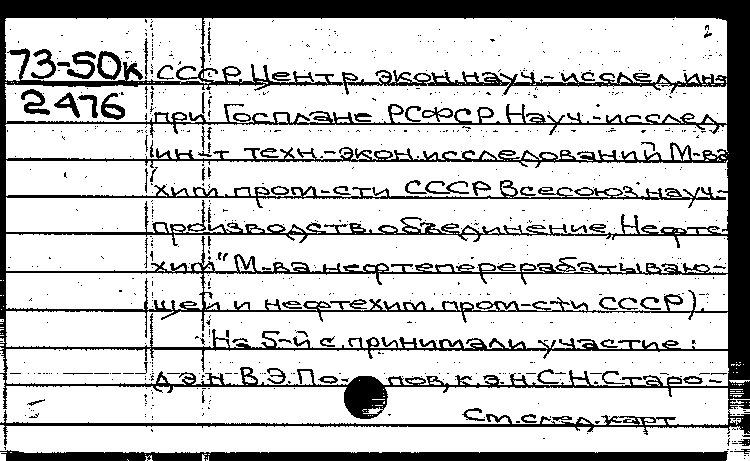 2
73-50к СССР. Центр. экон. науч.-исслед. ин-т
2476 при Госплане РСФСР. Науч.-исслед.
ин-т техн.-экон. исследований М-ва
хим. пром-сти СССР. Всесоюз. науч.-
производств. объединение „Нефте-
хим" М-ва нефтеперерабатываю-
щей и нефтехим. пром-сти СССР).
На 5-й с. принимали участие:
д.э.н. В.Э. По-пов, к.э.н. С.Н. Старо-
См. след. карт